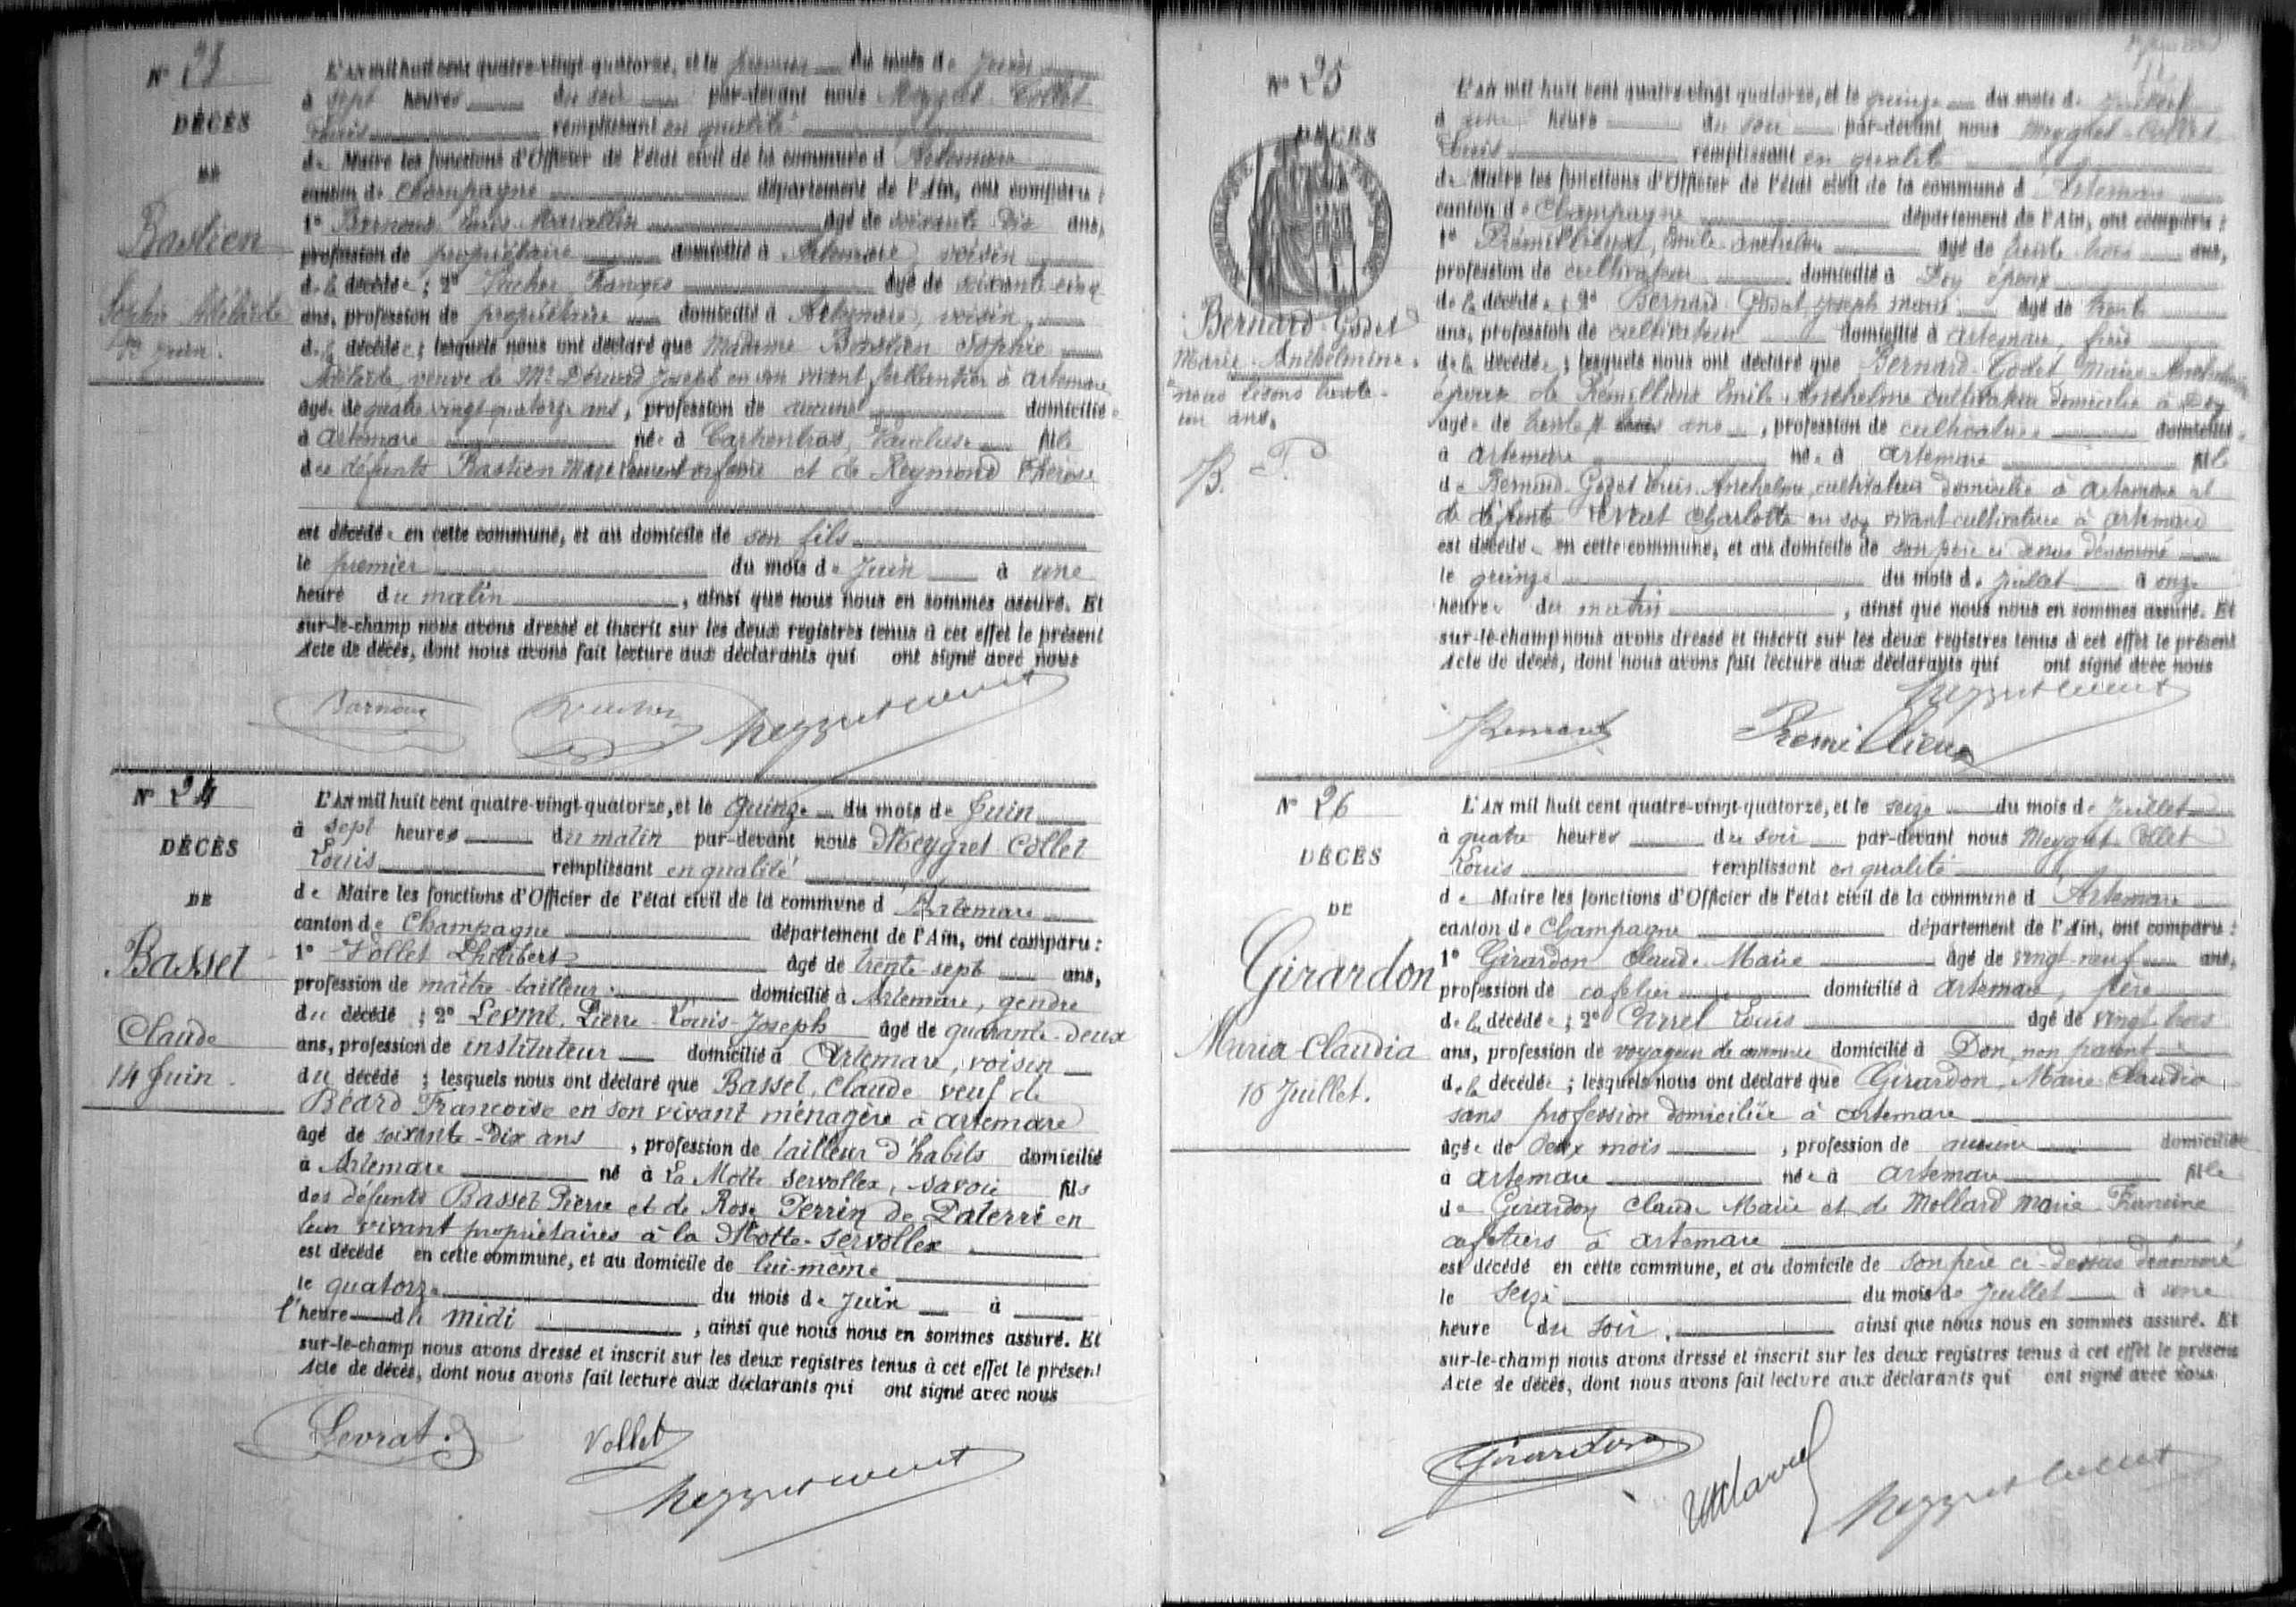 N° 23
DÉCÈS
DE
Bastien
Sophie Adélaïde
1er Juin.
L'AN mil huit cent quatre-vingt-quatorze, et le premier du mois de Juin
à sept heures du soir par-devant nous Meygret-Collet
Louis remplissant en qualité
de Maire les fonctions d'Officier de l'état civil de la commune d'Artemare
canton de Champagne département de l'Ain, ont comparu :
1° Marcellin âgé de soixante dix ans,
profession de propriétaire domicilié à Artemare, voisin
de la décédée ; 2° François âgé de soixante-cinq
ans, profession de propriétaire domicilié à Artemare, voisin
de la décédée ; lesquels nous ont déclaré que Madame Bastien Sophie
Adélaïde, veuve de Mr Joseph en son vivant à artemare
âgée de quatre vingt-quatorze ans, profession de aucune domiciliée
à artemare née à Carpentras, Vaucluse fille
des défunts Bastien et de Reymond Thérèse
est décédée en cette commune, et au domicile de son fils
le premier du mois de Juin à une
heure du matin, ainsi que nous nous en sommes assuré. Et
sur-le-champ nous avons dressé et inscrit sur les deux registres tenus à cet effet le présent
Acte de décès, dont nous avons fait lecture aux déclarants qui ont signé avec nous
N° 24
DÉCÈS
DE
Basset
Claude
14 Juin.
L'AN mil huit cent quatre-vingt-quatorze, et le quinze du mois de Juin
à sept heures du matin par-devant nous Meygret Collet
Louis remplissant en qualité
de Maire les fonctions d'Officier de l'état civil de la commune d'Artemare
canton de Champagne département de l'Ain, ont comparu :
1° Vollet Philibert âgé de trente sept ans,
profession de maître-tailleur domicilié à Artemare, gendre
du décédé ; 2° Levrat, Pierre-Louis-Joseph âgé de quarante-deux
ans, profession de instituteur domicilié à Artemare, voisin
du décédé ; lesquels nous ont déclaré que Basset, Claude veuf de
Béard Françoise en son vivant ménagère à artemare
âgé de soixante-dix ans, profession de tailleur d'habits domicilié
à Artemare né à La Motte Servollex, Savoie fils
des défunts Basset Pierre et de Rose Perrin de Paterri en
leur vivant propriétaires à la Motte-Servollex
est décédé en cette commune, et au domicile de lui-même
le quatorze du mois de Juin à
l'heure de midi, ainsi que nous nous en sommes assuré. Et
sur-le-champ nous avons dressé et inscrit sur les deux registres tenus à cet effet le présent
Acte de décès, dont nous avons fait lecture aux déclarants qui ont signé avec nous
Levrat Vollet
N° 25
DÉCÈS
Bernard-Godet
Marie-Anthelmine.
nous lisons trente-
un ans.
L'AN mil huit cent quatre-vingt-quatorze, et le quinze du mois de Juillet
à une heure du soir par-devant nous Meygret-Collet
Louis remplissant en qualité
de Maire les fonctions d'Officier de l'état civil de la commune d'Artemare
canton de Champagne département de l'Ain, ont comparu :
1° Rémillieux, Emile-Anthelme âgé de trente trois ans,
profession de cultivateur domicilié à Don époux
de la décédée ; 2° Bernard-Godet Joseph Marie âgé de trente
ans, profession de cultivateur domicilié à artemare, frère
de la décédée ; lesquels nous ont déclaré que Bernard-Godet Marie-Anthelmine
épouse de Rémillieux Emile-Anthelme cultivateur domicilié à Don
âgée de trente ans, profession de cultivatrice domiciliée
à artemare née à artemare fille
de Bernard-Godet Louis-Anthelme, cultivateur domicilié à artemare et
de défunte Charlotte en son vivant cultivatrice à artemare
est décédée en cette commune, et au domicile de son père ci dessus dénommé
le quinze du mois de Juillet à onze
heures du matin, ainsi que nous nous en sommes assuré. Et
sur-le-champ nous avons dressé et inscrit sur les deux registres tenus à cet effet le présent
Acte de décès, dont nous avons fait lecture aux déclarants qui ont signé avec nous
Remillieux
N° 26
DÉCÈS
DE
Girardon
Maria-Claudia
16 Juillet.
L'AN mil huit cent quatre-vingt-quatorze, et le seize du mois de Juillet
à quatre heures du soir par-devant nous Meygret-Collet
Louis remplissant en qualité
de Maire les fonctions d'Officier de l'état civil de la commune d'Artemare
canton de Champagne département de l'Ain, ont comparu :
1° Girardon Claude-Marie âgé de vingt-neuf ans,
profession de cafetier domicilié à artemare, père
de la décédée ; 2° Louis âgé de vingt trois
ans, profession de voyageur de commerce domicilié à Don, non parent
de la décédée ; lesquels nous ont déclaré que Girardon, Maria Claudia
sans profession domiciliée à artemare
âgée de deux mois, profession de aucune domiciliée
à artemare née à artemare fille
de Girardon Claude Marie et de Mollard Marie-Francine
cafetiers à artemare
est décédé en cette commune, et au domicile de son père ci-dessus dénommé
le seize du mois de Juillet à une
heure du soir, ainsi que nous nous en sommes assuré. Et
sur-le-champ nous avons dressé et inscrit sur les deux registres tenus à cet effet le présent
Acte de décès, dont nous avons fait lecture aux déclarants qui ont signé avec nous.
Girardon